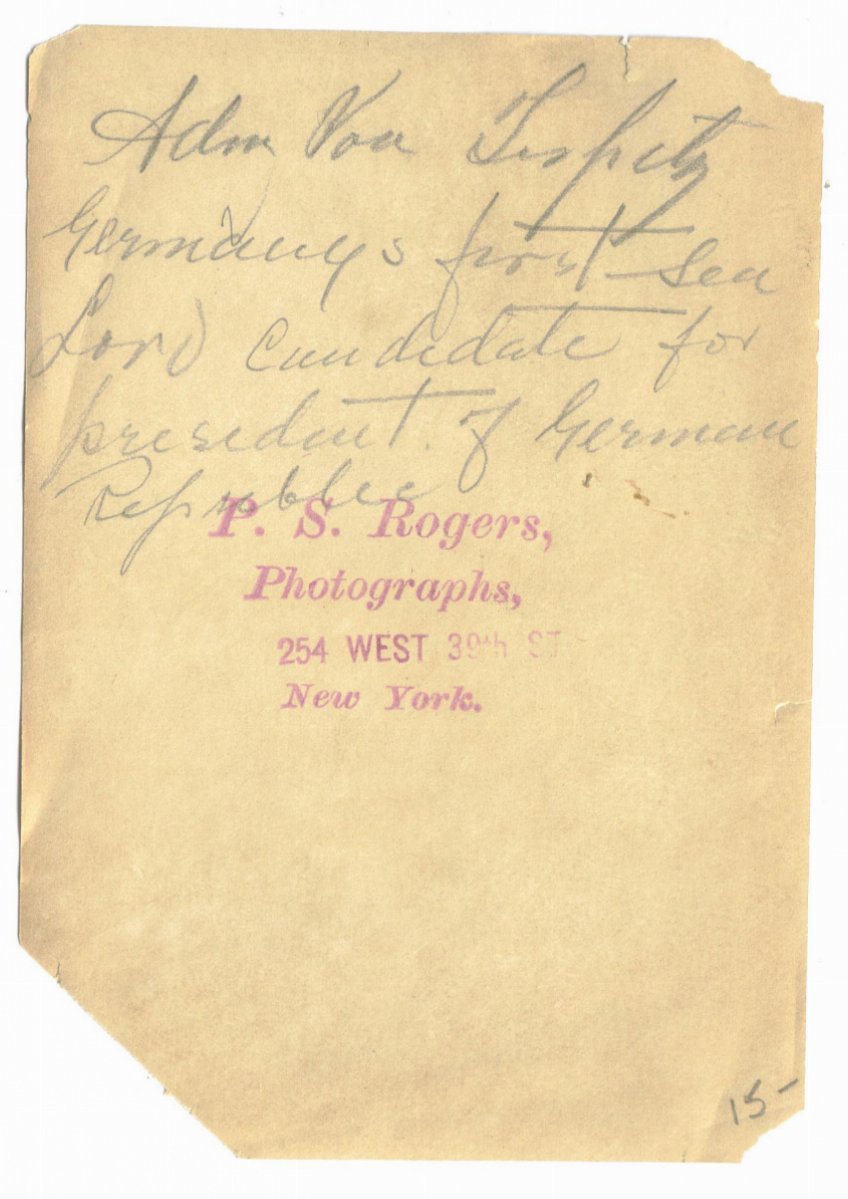 Adm Von Tirpitz
Germanys first Sea
Lord candidate for
president of German
Republic
P. S. Rogers,
Photographs,
254 WEST 39th ST
New York.
15-